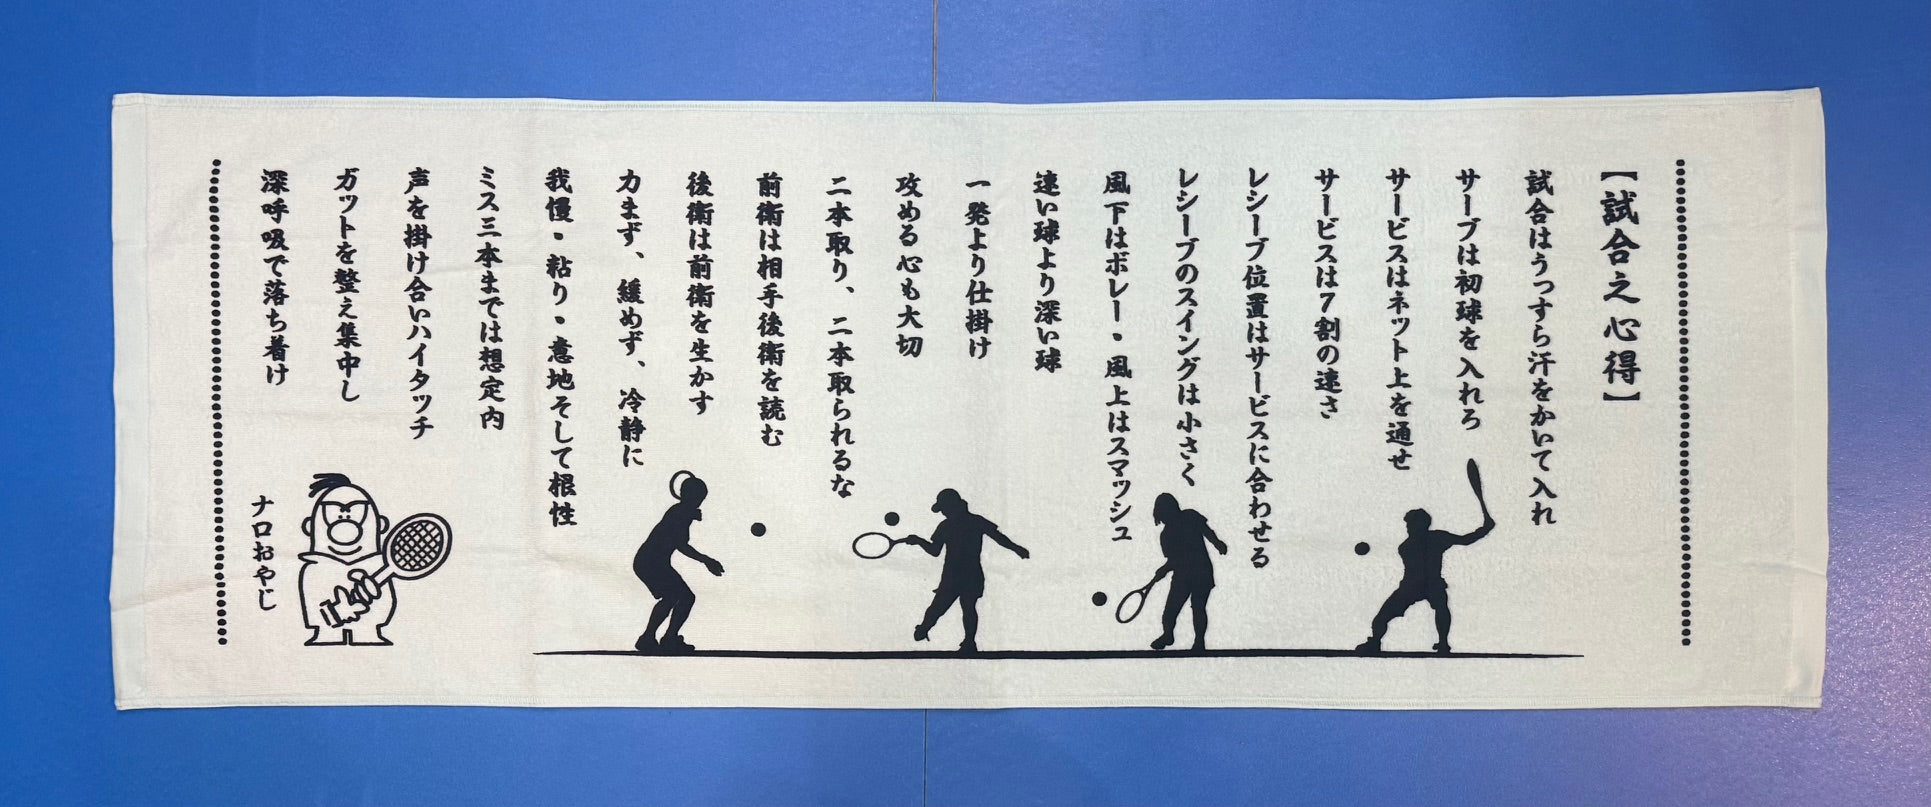 【試合之心得】
試合はうっすら汗をかいて入れ
サーブは初球を入れろ
サービスはネット上を通せ
サービスは７割の速さ
レシーブ位置はサービスに合わせる
レシーブのスイングは小さく
風下はボレー・風上はスマッシュ
速い球より深い球
一発より仕掛け
攻める心も大切
二本取り、二本取られるな
前衛は相手後衛を読む
後衛は前衛を生かす
力まず、緩めず、冷静に
我慢・粘り・意地そして根性
ミス三本までは想定内
声を掛け合いハイタッチ
ガットを整え集中し
深呼吸で落ち着け
ナロおやじ